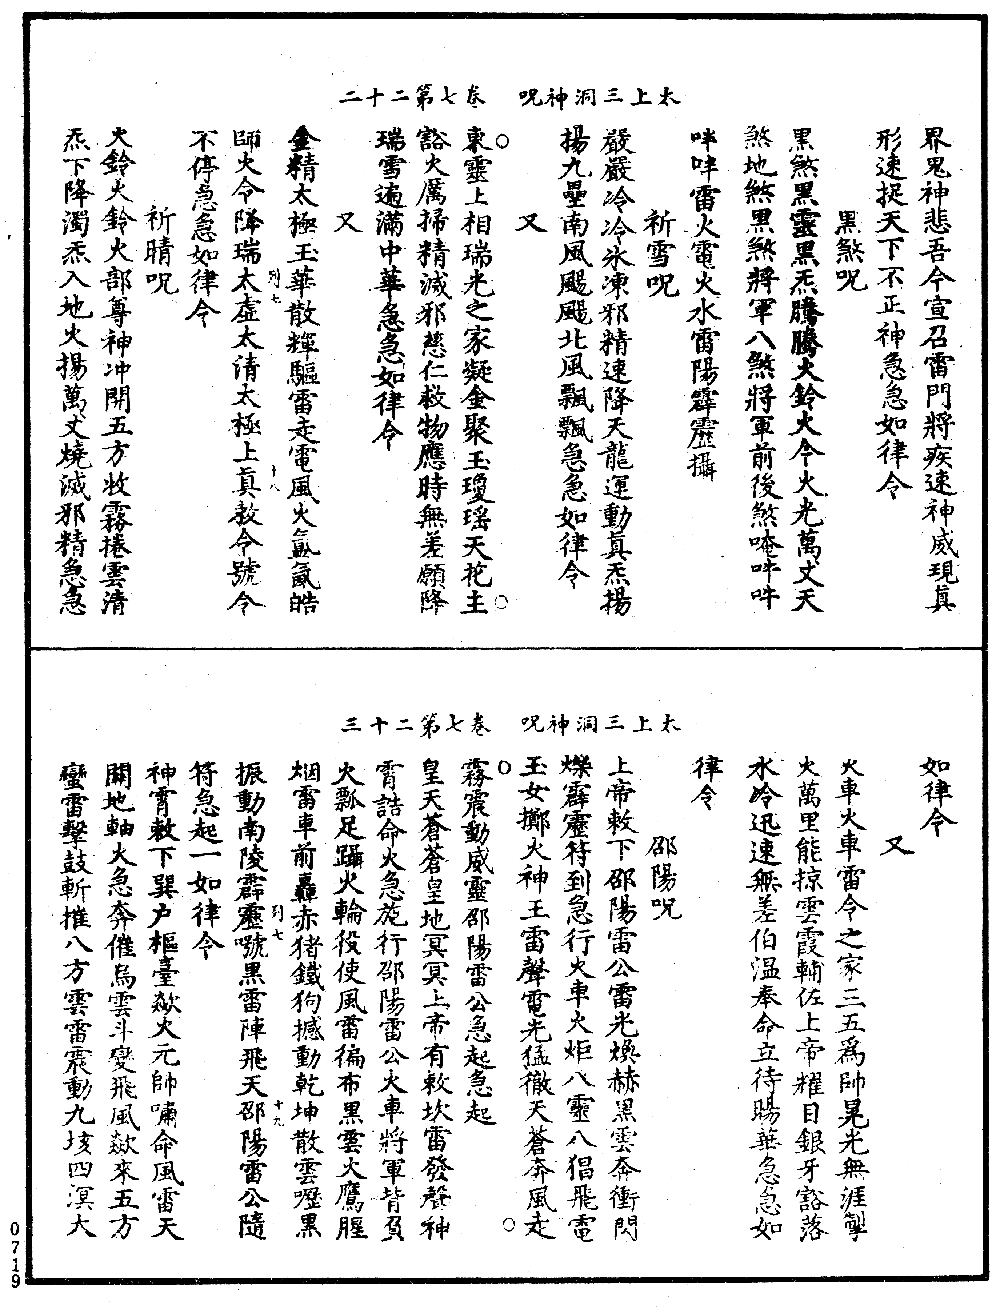 太上三洞神呪　卷七第二十二
界鬼神悲吾今宣召雷門將疾速神威現真
形速捉天下不正神急急如律令
黑煞呪
黑煞黑靈黑炁騰騰火鈴火令火光萬丈天
煞地煞黑煞將軍八煞將軍前後煞唵吽吽
吽吽雷火電火水雷陽霹靂攝
祈雪呪
嚴嚴冷冷冰凍邪精速降天龍運動真炁揚
揚九壘南風颺颺北風飄飄急急如律令
又
東靈上相瑞光之家凝金聚玉瓊瑤天花主
豁火厲掃精滅邪慈仁救物應時無差願降
瑞雪遍滿中華急急如律令
又
金精太極玉華散輝驅雷走電風火氤氳皓
列七
十八
師火令降瑞太虛太清太極上真敕令號令
不停急急如律令
祈晴呪
火鈴火鈴火部尊神冲開五方收霧捲雲清
炁下降濁炁入地火揚萬丈燒滅邪精急急
太上三洞神呪　卷七第二十三
如律令
又
火車火車雷令之家三五為帥晃光無涯掣
火萬里能掠雲霞輔佐上帝耀目銀牙豁落
水冷迅速無差伯溫奉命立待暘華急急如
律令
邵陽呪
上帝敕下邵陽雷公雷光煥赫黑雲奔衝閃
爍霹靂符到急行火車火炬八靈八猖飛電
玉女擲火神王雷聲電光猛徹天蒼奔風走
霧震動威靈邵陽雷公急起急起
皇天蒼蒼皇地冥冥上帝有敕坎雷發聲神
霄誥命火急施行邵陽雷公火車將軍背負
火瓢足躡火輪役使風雷徧布黑雲火鷹腥
烟雷車前轟赤猪鐵狗撼動乾坤散雲壢黑
振動南陵霹靂號黑雷陣飛天邵陽雷公隨
列七
十九
符急起一如律令
神霄敕下巽户樞臺歘火元帥嘯命風雷天
關地軸火急奔催烏雲斗變飛風歘來五方
蠻雷擊鼓斬摧八方雲雷震動九垓四溟大
0719